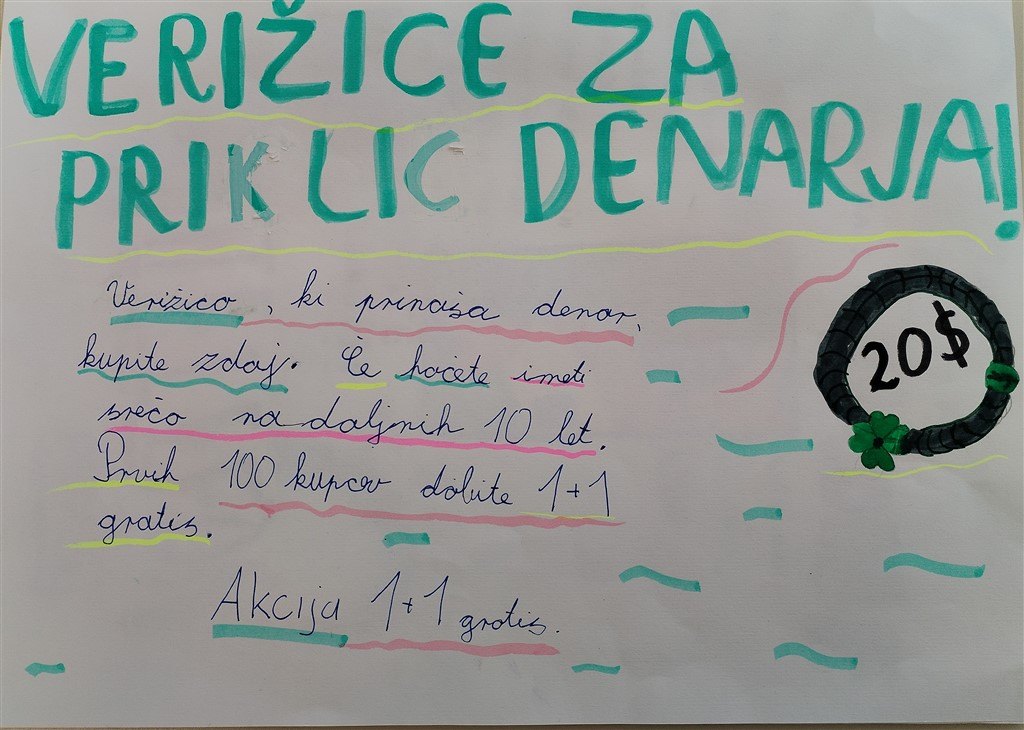 VERIŽICE ZA
PRIKLIC DENARJA!
Verižico, ki prinaša denar,
kupite zdaj. Če hočete imeti
srečo na daljnih 10 let.
Prvih 100 kupcov dobite 1+1
gratis.
Akcija 1+1 gratis.
20$